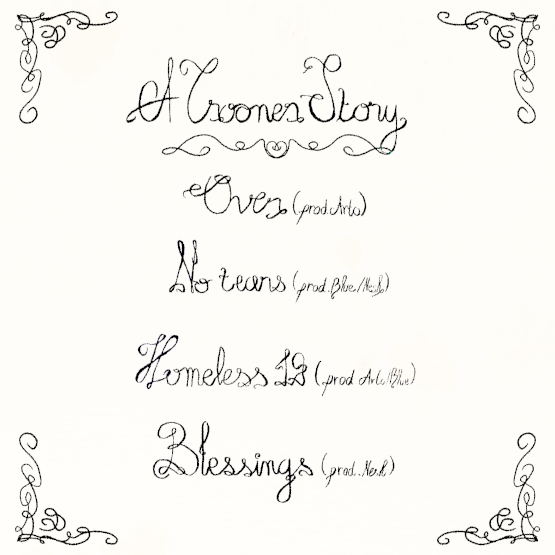 A Crooner Story
Over (prod Arto)
No tears (prod. Blue/
Homeless 19 (prod Arto/Blue)
Blessings (prod.